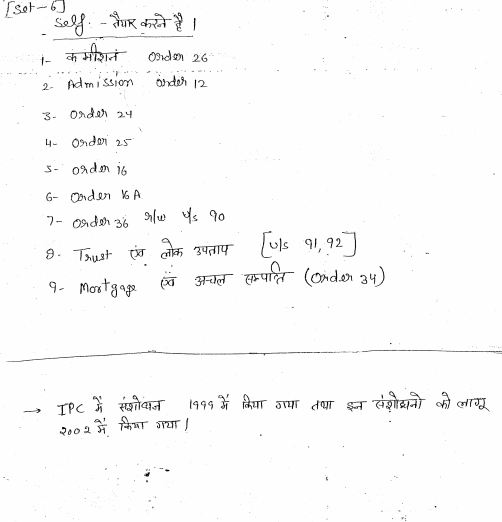 [Set-6]
Self - तैयार करने है ।
1- कमीशन Order 26
2- Admission Order 12
3- Order 24
4- Order 25
5- Order 16
6- Order 16A
7- Order 36 r/w u/s 90
8- Trust एंव लोक उपताप [u/s 91, 92]
9- Mortgage एंव अचल सम्पत्ति (Order 34)
→ IPC में संशोधन 1999 में किया गया तथा इन संशोधनो को लागू
2002 में किया गया ।